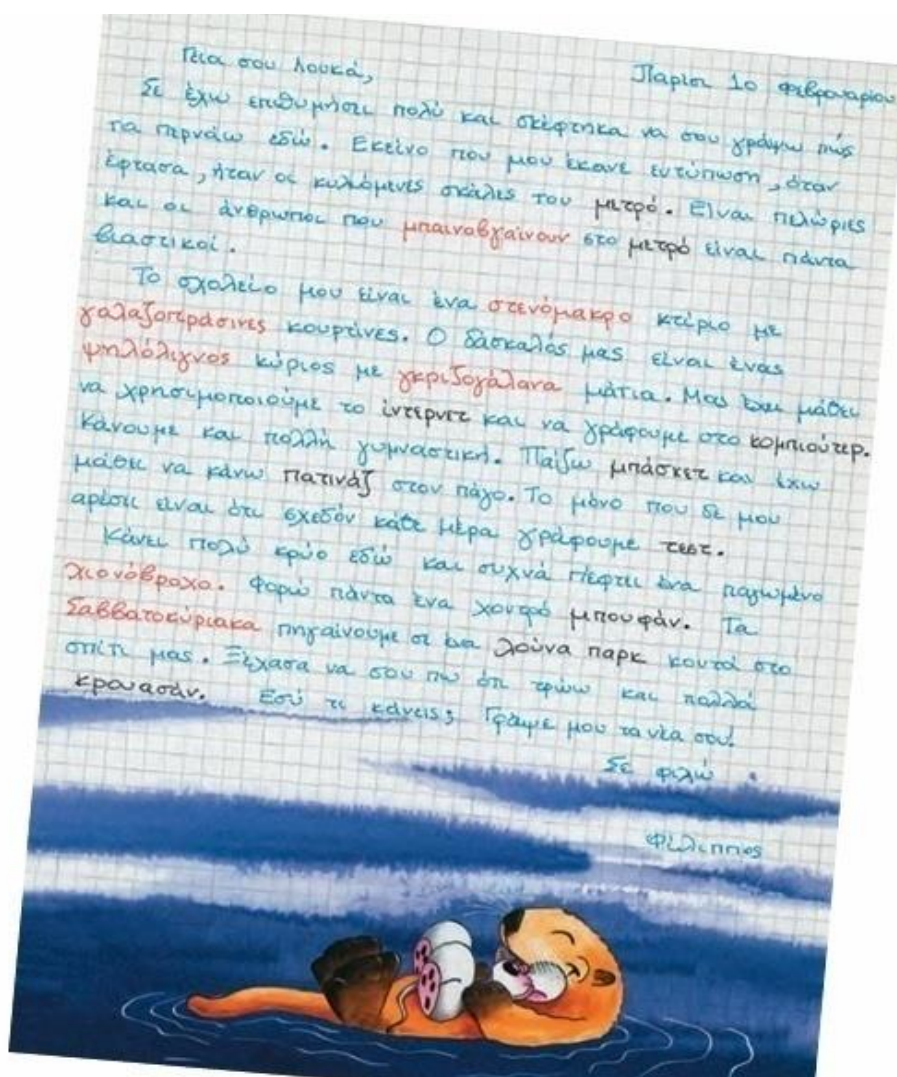 Γεια σου Λουκά,
Παρίσι 1ο Φεβρουαρίου
Σε έχω επιθυμήσει πολύ και σκέφτηκα να σου γράψω πώς
τα περνάω εδώ. Εκείνο που μου έκανε εντύπωση, όταν
έφτασα, ήταν οι κυλιόμενες σκάλες του μετρό. Είναι πελώριες
και οι άνθρωποι που μπαινοβγαίνουν στο μετρό είναι πάντα
βιαστικοί.
Το σχολείο μου είναι ένα στενόμακρο κτίριο με
γαλαζοπράσινες κουρτίνες. Ο δάσκαλός μας είναι ένας
ψηλόλιγνος κύριος με γκριζογάλανα μάτια. Μας έχει μάθει
να χρησιμοποιούμε το ίντερνετ και να γράφουμε στο κομπιούτερ.
Κάνουμε και πολλή γυμναστική. Παίζω μπάσκετ και έχω
μάθει να κάνω πατινάζ στον πάγο. Το μόνο που δε μου
αρέσει είναι ότι σχεδόν κάθε μέρα γράφουμε τεστ.
Κάνει πολύ κρύο εδώ και συχνά πέφτει ένα παγωμένο
χιονόβροχο. Φορώ πάντα ένα χοντρό μπουφάν. Τα
Σαββατοκύριακα πηγαίνουμε σε ένα λούνα παρκ κοντά στο
σπίτι μας. Ξέχασα να σου πω ότι τρώω και πολλά
κρουασάν. Εσύ τι κάνεις; Γράψε μου τα νέα σου!
Σε φιλώ.
Φίλιππος